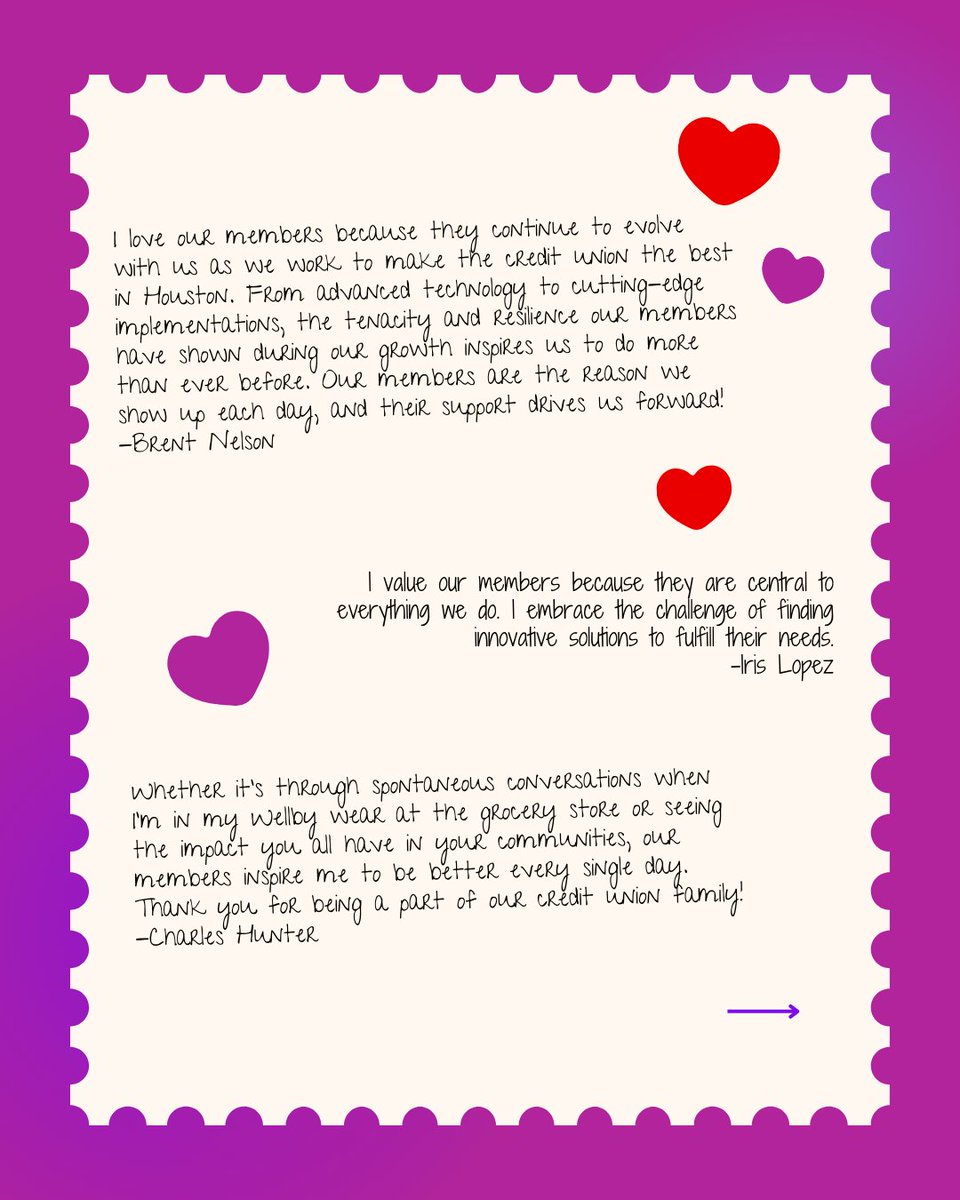 I love our members because they continue to evolve
with us as we work to make the credit union the best
in Houston. From advanced technology to cutting-edge
implementations, the tenacity and resilience our members
have shown during our growth inspires us to do more
than ever before. Our members are the reason we
show up each day, and their support drives us forward!
-Brent Nelson
I value our members because they are central to
everything we do. I embrace the challenge of finding
innovative solutions to fulfill their needs.
-Iris Lopez
Whether it's through spontaneous conversations when
I'm in my Wellby wear at the grocery store or seeing
the impact you all have in your communities, our
members inspire me to be better every single day.
Thank you for being a part of our credit union family!
-Charles Hunter